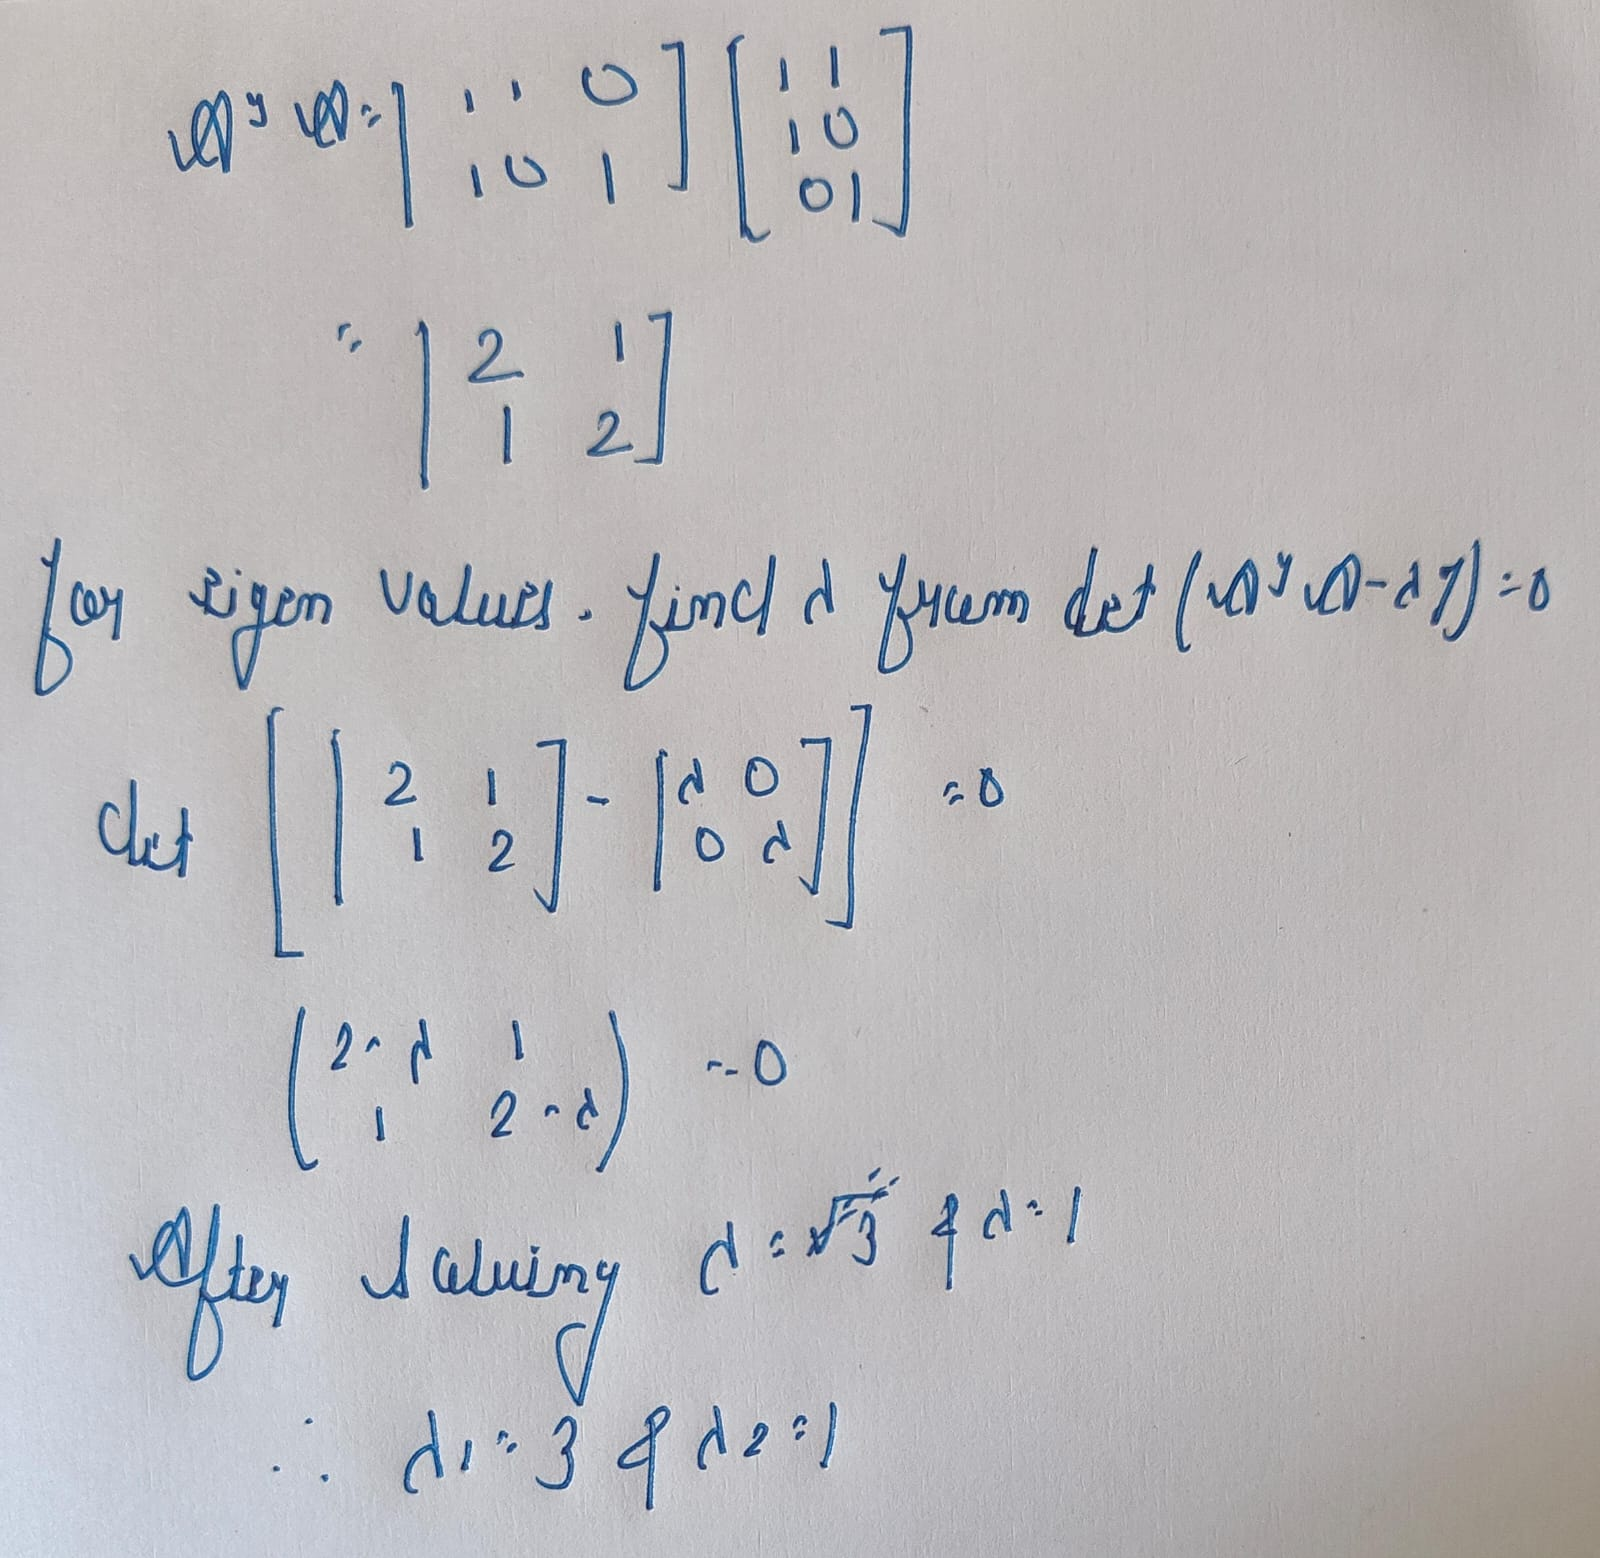 AᵀA = [1 1 0] [1 1]
[1 0 1] [1 0]
[0 1]
= [2 1]
[1 2]
for eigen values. find λ from det (AᵀA - λI) = 0
det [[2 1] - [λ 0]] = 0
[1 2] [0 λ]
(2-λ 1) = 0
(1 2-λ)
After solving λ = 3 & λ = 1
∴ λ1 = 3 & λ2 = 1